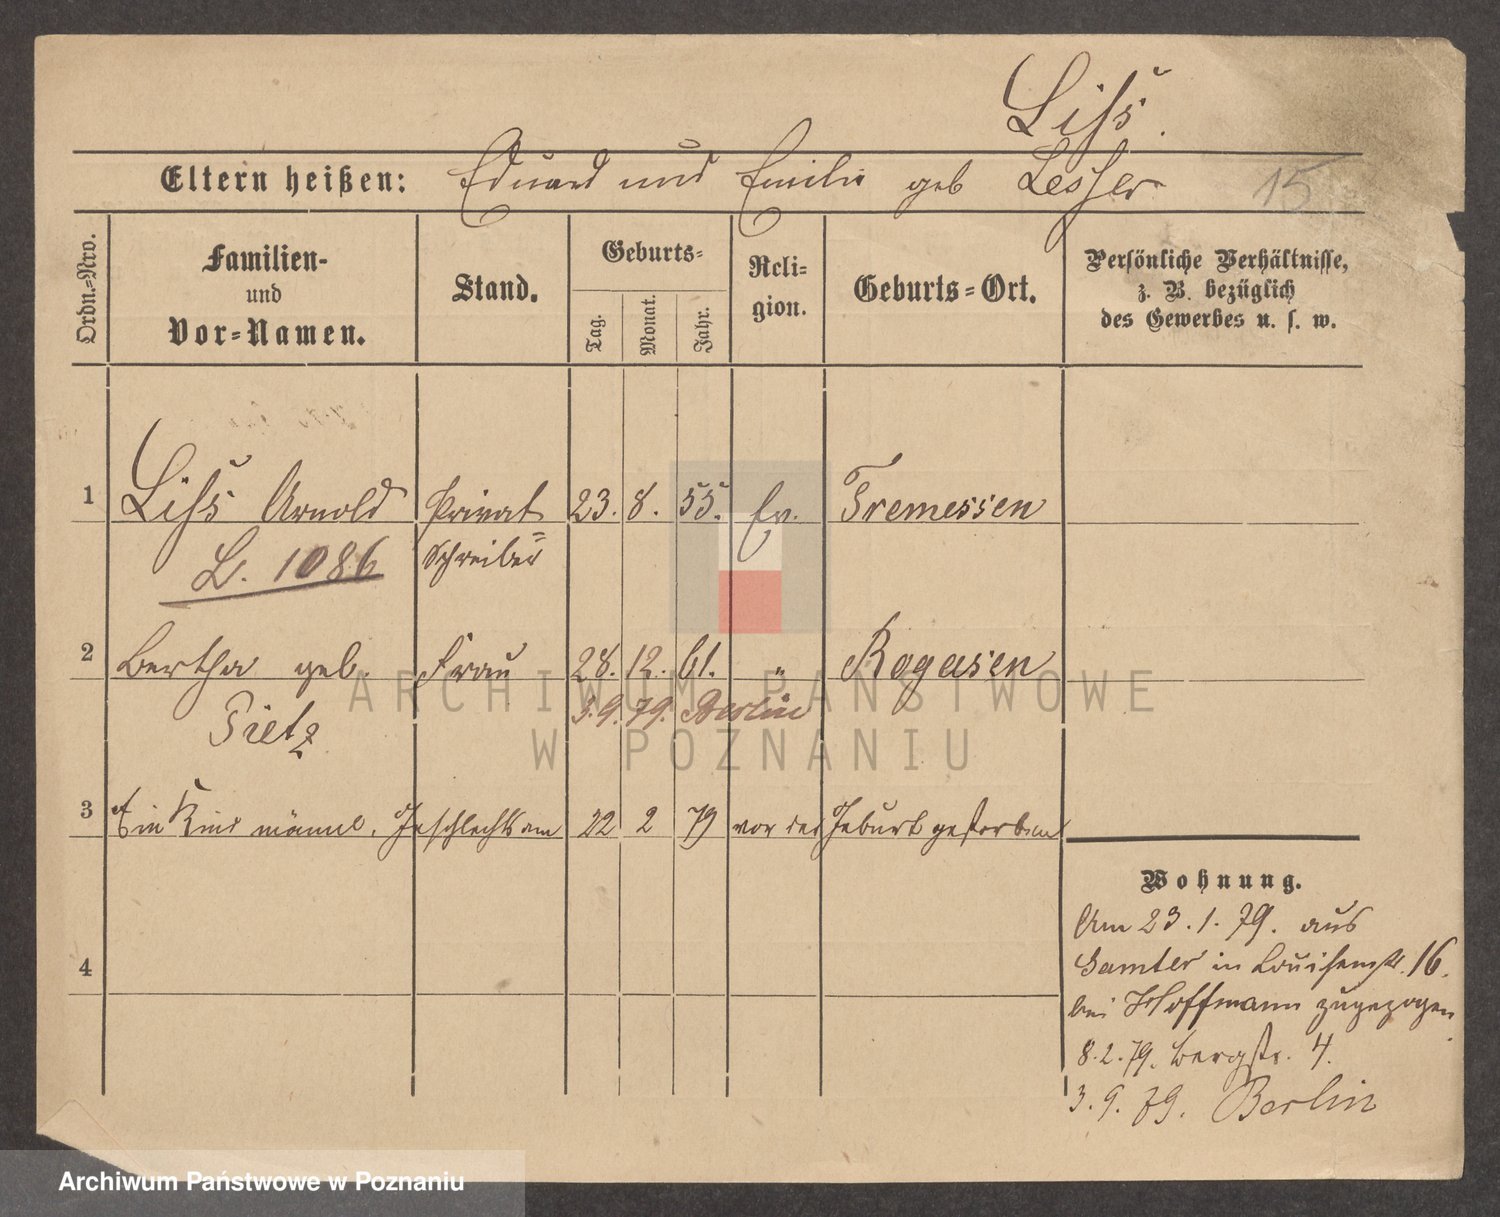 Liss.
Eltern heißen: Eduard und Emilie geb Lesser
15
Ordn.-Nro.
Familien- und Vor-Namen.
Stand.
Geburts-
Tag. Monat. Jahr.
Reli-
gion.
Geburts-Ort.
Persönliche Verhältnisse,
z. B. bezüglich
des Gewerbes u. s. w.
1 Liss Arnold Privat 23. 8. 55. Ev. Tremessen
L. 1086 schreiber
2 Bertha geb. Frau 28. 12. 61. " Rogasen
3.9. 79. Berlin
Pietz
3 Ein Kind männl. Geschlechts am 22 2 79 vor der Geburt gestorben
4
Wohnung.
Am 23.1.79. aus
Samter in Louisenstr. 16.
bei Hoffmann zugezogen
8.2.79. Bergstr. 4.
3.9.79. Berlin
ARCHIWUM PAŃSTWOWE
W POZNANIU
Archiwum Państwowe w Poznaniu